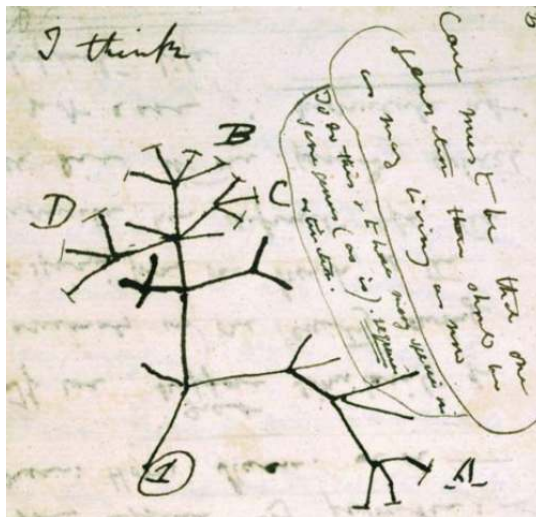 I think
Case must be that one
generation then should be
as many living as now
To do this & to have many species in
same genus (as is). requires
extinction.
B
C
D
A
1